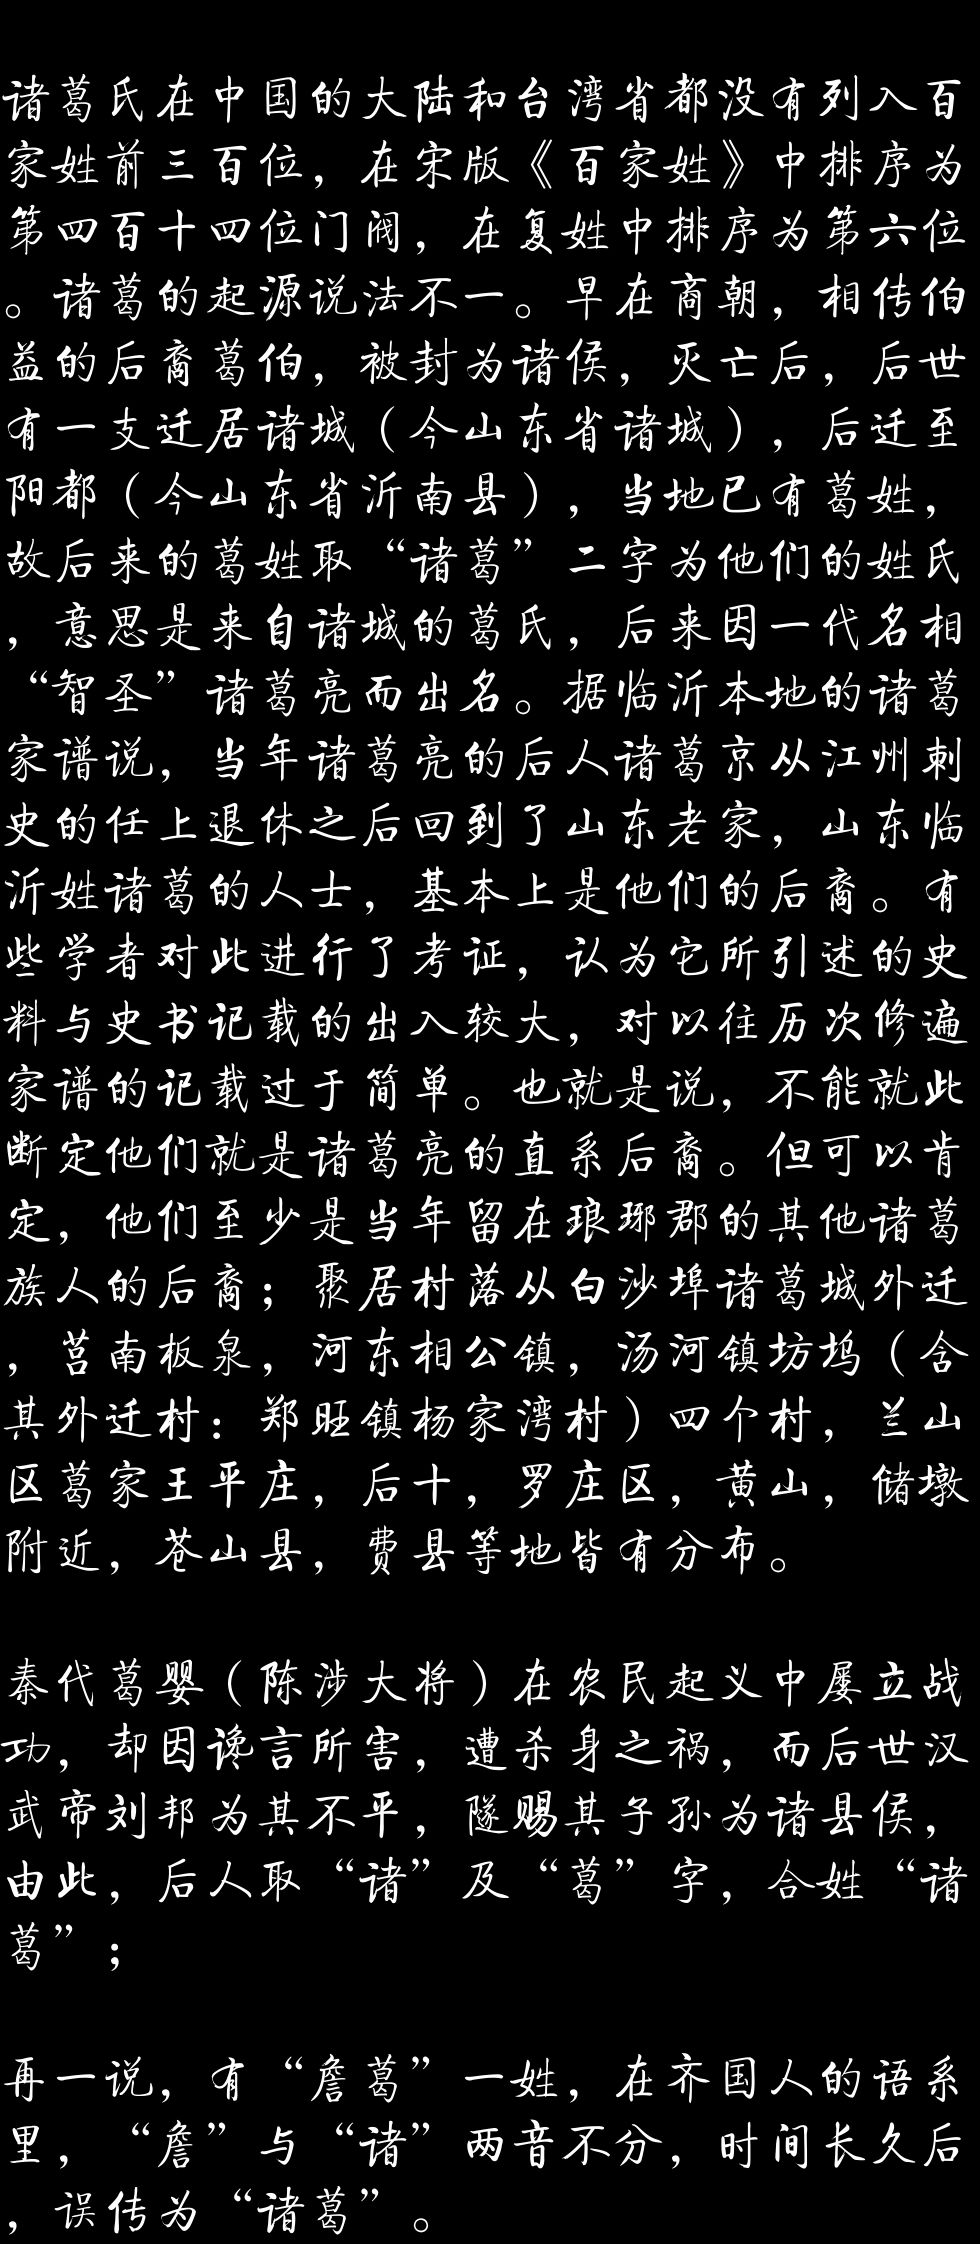 诸葛氏在中国的大陆和台湾省都没有列入百
家姓前三百位，在宋版《百家姓》中排序为
第四百十四位门阀，在复姓中排序为第六位
。诸葛的起源说法不一。早在商朝，相传伯
益的后裔葛伯，被封为诸侯，灭亡后，后世
有一支迁居诸城（今山东省诸城），后迁至
阳都（今山东省沂南县），当地已有葛姓，
故后来的葛姓取“诸葛”二字为他们的姓氏
，意思是来自诸城的葛氏，后来因一代名相
“智圣”诸葛亮而出名。据临沂本地的诸葛
家谱说，当年诸葛亮的后人诸葛京从江州刺
史的任上退休之后回到了山东老家，山东临
沂姓诸葛的人士，基本上是他们的后裔。有
些学者对此进行了考证，认为它所引述的史
料与史书记载的出入较大，对以往历次修遍
家谱的记载过于简单。也就是说，不能就此
断定他们就是诸葛亮的直系后裔。但可以肯
定，他们至少是当年留在琅琊郡的其他诸葛
族人的后裔；聚居村落从白沙埠诸葛城外迁
，莒南板泉，河东相公镇，汤河镇坊坞（含
其外迁村：郑旺镇杨家湾村）四个村，兰山
区葛家王平庄，后十，罗庄区，黄山，储墩
附近，苍山县，费县等地皆有分布。
秦代葛婴（陈涉大将）在农民起义中屡立战
功，却因谗言所害，遭杀身之祸，而后世汉
武帝刘邦为其不平，隧赐其子孙为诸县侯，
由此，后人取“诸”及“葛”字，合姓“诸
葛”；
再一说，有“詹葛”一姓，在齐国人的语系
里，“詹”与“诸”两音不分，时间长久后
，误传为“诸葛”。